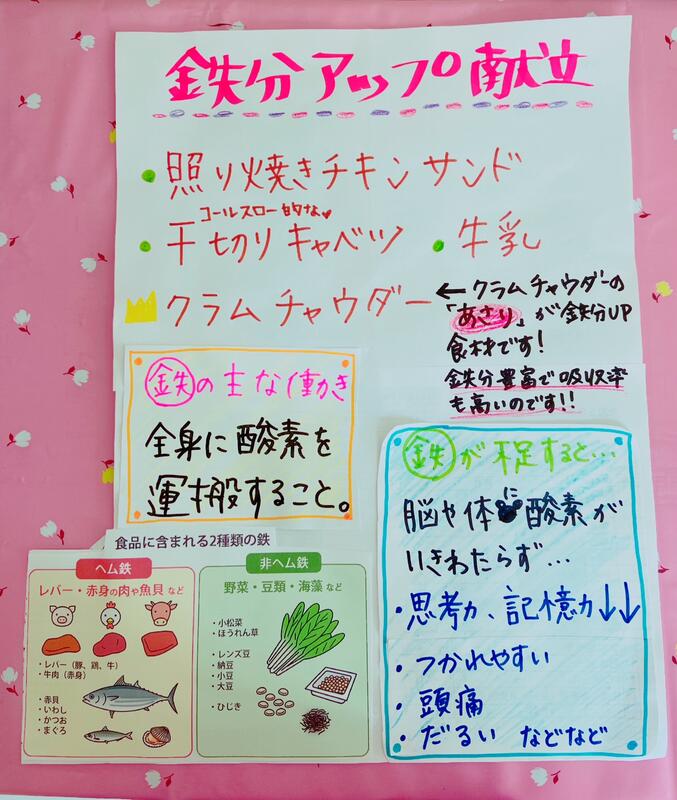 鉄分アップ献立
・照り焼きチキンサンド
コールスロー的な♥
・千切りキャベツ ・牛乳
クラムチャウダー
←クラムチャウダーの
「あさり」が鉄分UP
食材です!
鉄分豊富で吸収率
も高いのです!!
鉄の主な働き
全身に酸素を
運搬すること。
鉄が不足すると…
脳や体に酸素が
いきわたらず…
・思考力、記憶力↓↓
・つかれやすい
・頭痛
・だるい などなど
食品に含まれる2種類の鉄
ヘム鉄
レバー・赤身の肉や魚貝 など
・レバー（豚、鶏、牛）
・牛肉（赤身）
・赤貝
・いわし
・かつお
・まぐろ
非ヘム鉄
野菜・豆類・海藻 など
・小松菜
・ほうれん草
・レンズ豆
・納豆
・小豆
・大豆
・ひじき